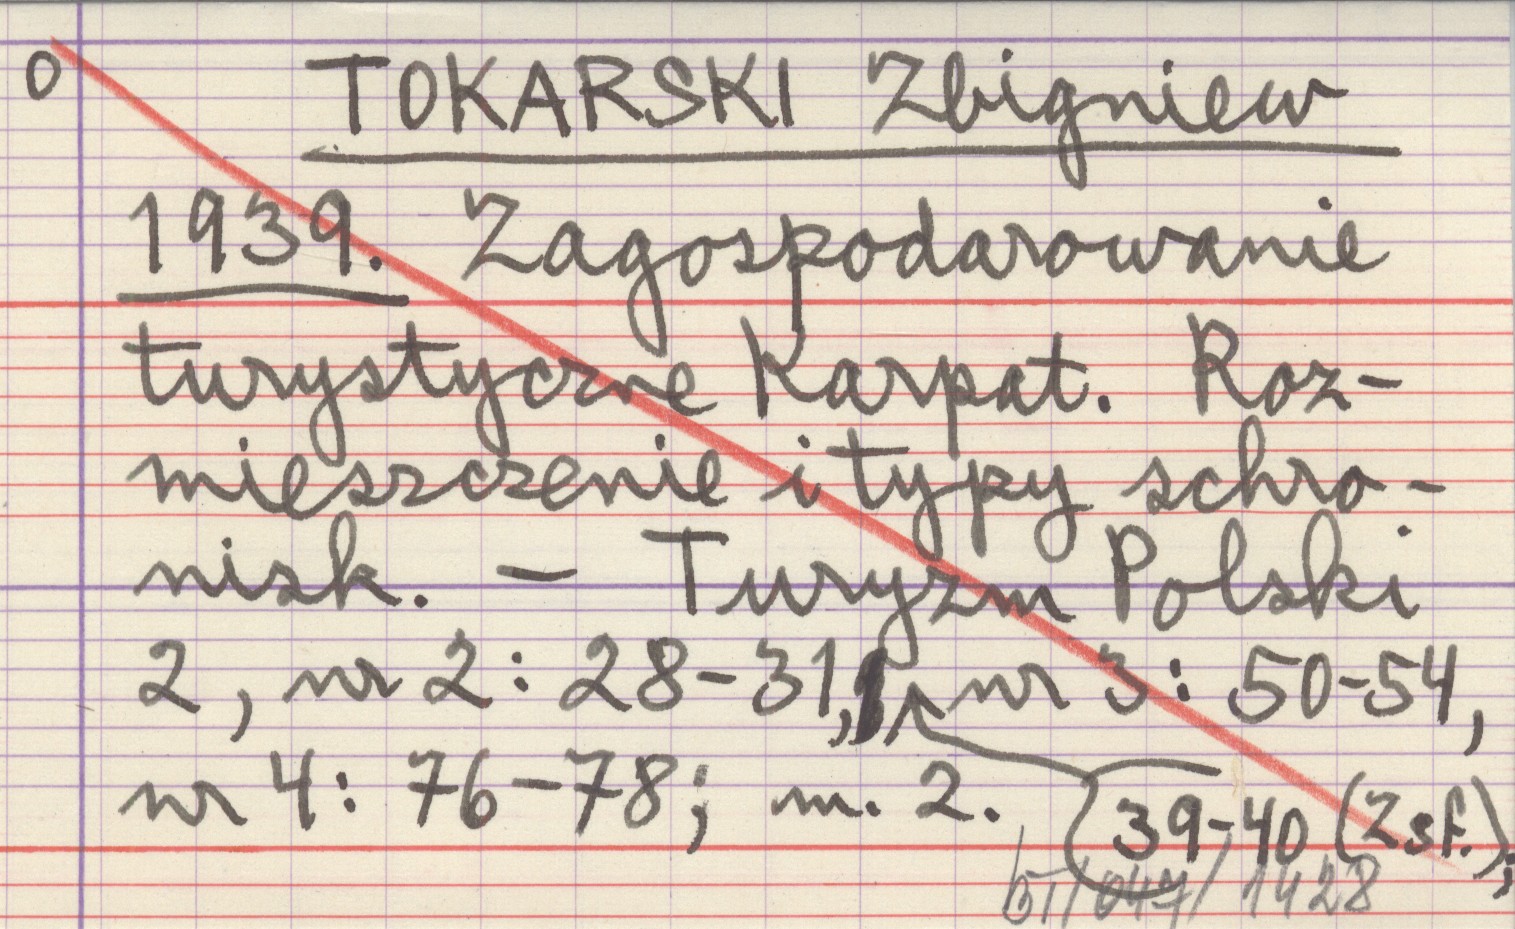 0 TOKARSKI Zbigniew
1939. Zagospodarowanie
turystyczne Karpat. Roz-
mieszczenie i typy schro-
nisk. — Turyzm Polski
2, nr 2: 28-31, nr 3: 50-54,
nr 4: 76-78; m. 2.
39-40 (Zsf.);
1428